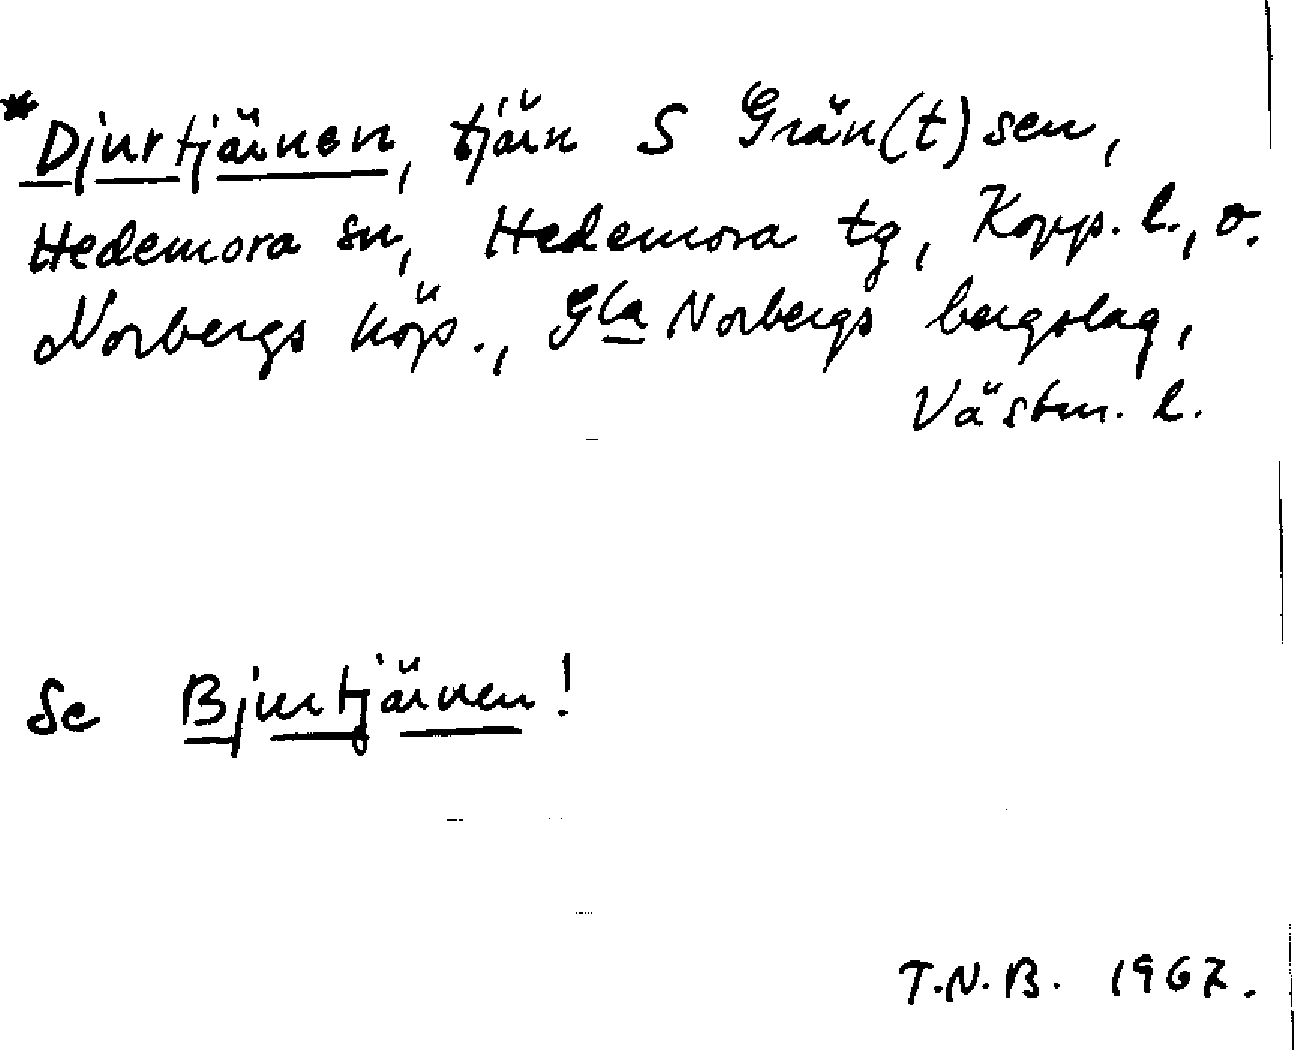 *Djurtjärnen, tjärn S Grän(t)sen,
Hedemora sn, Hedemora tg, Kopp. l., o.
Norbergs köp., Gla Norbergs bergslag,
Västm. l.
Se Bjurtjärnen!
T.N.B. 1967.